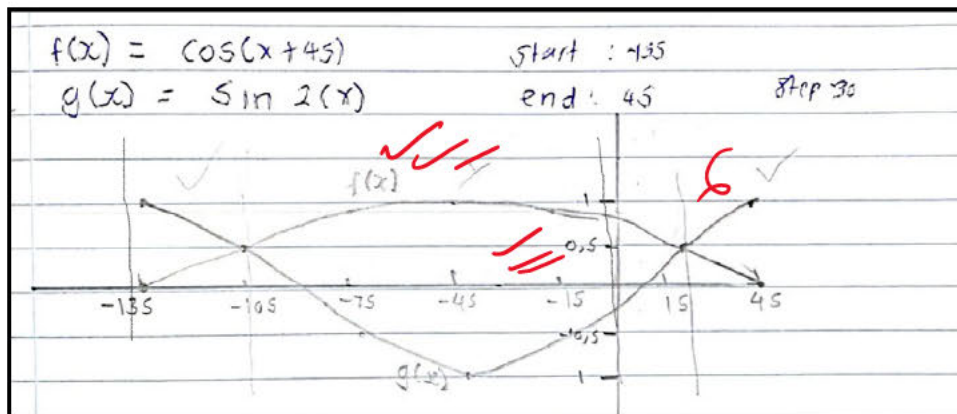 f(x) = cos(x+45) start : -135
g(x) = sin 2(x) end : 45 step 30
f(x) 6
1
0,5
-135 -105 -75 -45 -15 15 45
-0,5
g(x) 1